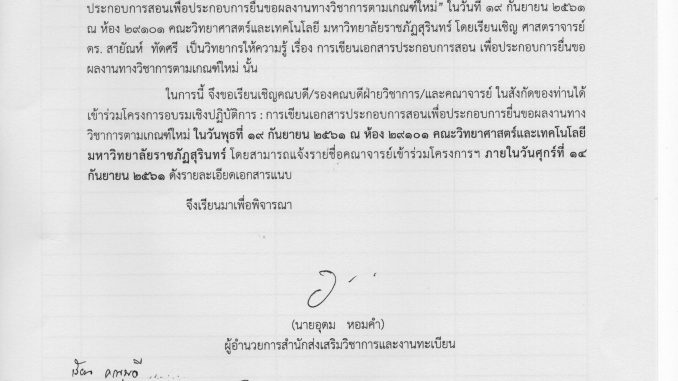 ประกอบการสอนเพื่อประกอบการยื่นขอผลงานทางวิชาการตามเกณฑ์ใหม่" ในวันที่ ๑๙ กันยายน ๒๕๖๑
ณ ห้อง ๒๙๑๐๑ คณะวิทยาศาสตร์และเทคโนโลยี มหาวิทยาลัยราชภัฏสุรินทร์ โดยเรียนเชิญ ศาสตราจารย์
ดร. สายัณห์ ทัดศรี เป็นวิทยากรให้ความรู้ เรื่อง การเขียนเอกสารประกอบการสอน เพื่อประกอบการยื่นขอ
ผลงานทางวิชาการตามเกณฑ์ใหม่ นั้น
ในการนี้ จึงขอเรียนเชิญคณบดี/รองคณบดีฝ่ายวิชาการ/และคณาจารย์ ในสังกัดของท่านได้
เข้าร่วมโครงการอบรมเชิงปฏิบัติการ : การเขียนเอกสารประกอบการสอนเพื่อประกอบการยื่นขอผลงานทาง
วิชาการตามเกณฑ์ใหม่ ในวันพุธที่ ๑๙ กันยายน ๒๕๖๑ ณ ห้อง ๒๙๑๐๑ คณะวิทยาศาสตร์และเทคโนโลยี
มหาวิทยาลัยราชภัฏสุรินทร์ โดยสามารถแจ้งรายชื่อคณาจารย์เข้าร่วมโครงการฯ ภายในวันศุกร์ที่ ๑๔
กันยายน ๒๕๖๑ ดังรายละเอียดเอกสารแนบ
จึงเรียนมาเพื่อพิจารณา
(นายอุดม หอมคำ)
ผู้อำนวยการสำนักส่งเสริมวิชาการและงานทะเบียน